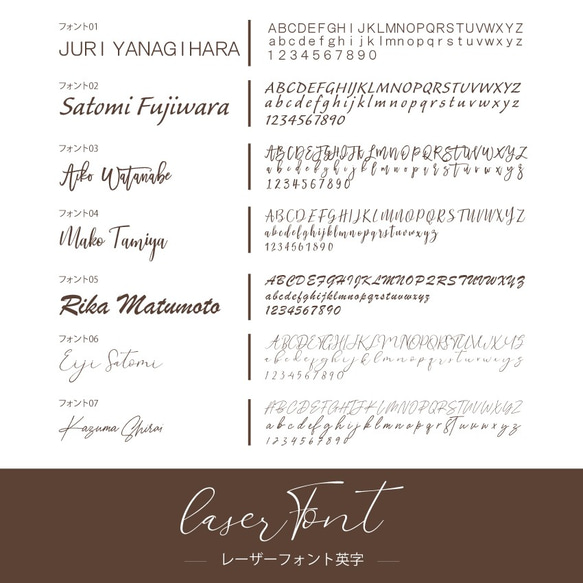 フォント01
JURI YANAGIHARA
ABCDEFGHIJKLMNOPQRSTUVWXYZ
abcdefghijklmnopqrstuvwxyz
1234567890
フォント02
Satomi Fujiwara
ABCDEFGHIJKLMNOPQRSTUVWXYZ
abcdefghijklmnopqrstuvwxyz
1234567890
フォント03
Aiko Watanabe
ABCDEFGHIJKLMNOPQRSTUVWXYZ
abcdefghijklmnopqrstuvwxyz
1234567890
フォント04
Mako Tamiya
ABCDEFGHIJKLMNOPQRSTUVWXYZ
abcdefghijklmnopqrstuvwxyz
1234567890
フォント05
Rika Matumoto
ABCDEFGHIJKLMNOPQRSTUVWXYZ
abcdefghijklmnopqrstuvwxyz
1234567890
フォント06
Eiji Satomi
ABCDEFGHIJKLMNOPQRSTUVWXYZ
abcdefghijklmnopqrstuvwxyz
1234567890
フォント07
Kazuma Shirai
ABCDEFGHIJKLMNOPQRSTUVWXYZ
abcdefghijklmnopqrstuvwxyz
1234567890
laser Font
レーザーフォント英字